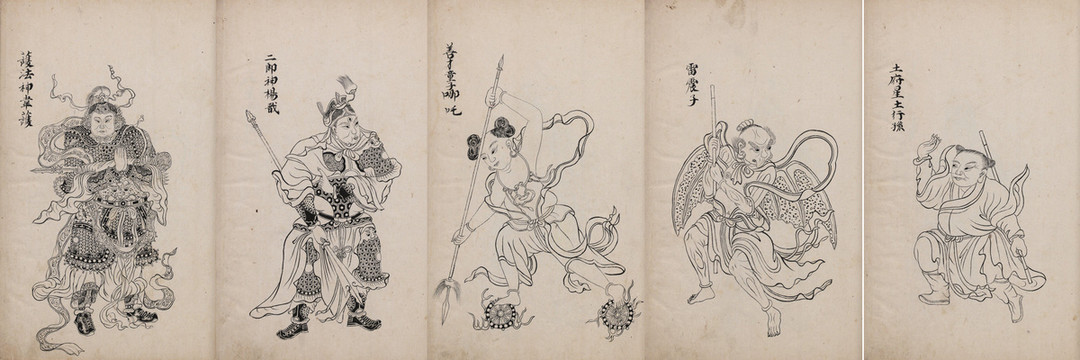 護法神韋護
二郎神楊戩
善才童子哪吒
雷震子
土府星土行孫